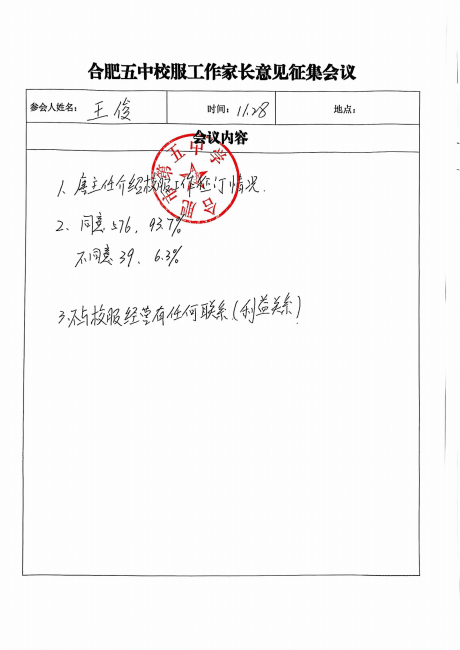 合肥五中校服工作家长意见征集会议
参会人姓名： 王俊 时间： 11.28 地点：
会议内容
合肥市第五中学
1. 唐主任介绍校服工作征订情况.
2、同意 576, 93.7%
不同意 39、6.3%
3.不与校服经营有任何联系(利益关系)